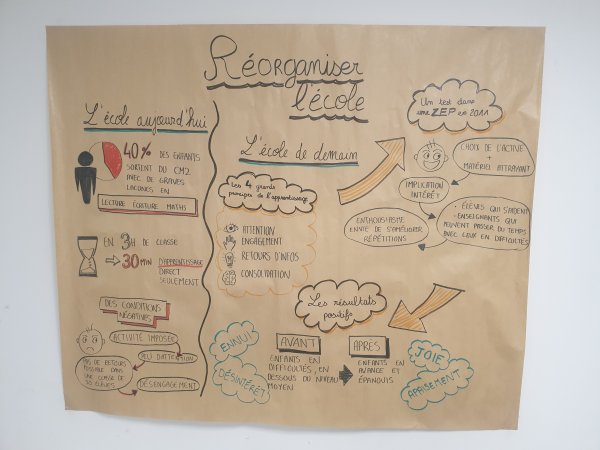 Réorganiser
l'école
L'école aujourd'hui
40% DES ENFANTS
SORTENT DU CM2
AVEC DE GRAVES
LACUNES EN
LECTURE ÉCRITURE MATHS
EN 3H DE CLASSE
30 MIN D'APPRENTISSAGE
DIRECT
SEULEMENT
DES CONDITIONS
NÉGATIVES
ACTIVITÉ IMPOSÉE
PEU D'ATTENTION
PAS DE RETOURS
POSSIBLE DANS
UNE CLASSE DE
30 ÉLÈVES
DÉSENGAGEMENT
L'école de demain
Les 4 grands
principes de l'apprentissage
ATTENTION
ENGAGEMENT
RETOURS D'INFOS
CONSOLIDATION
Un test dans
une ZEP en 2011
CHOIX DE L'ACTIVITÉ
+
MATÉRIEL ATTRAYANT
IMPLICATION
INTÉRÊT
ENTHOUSIASME
ENVIE DE S'AMÉLIORER
RÉPÉTITIONS
• ÉLÈVES QUI S'AIDENT
• ENSEIGNANTS QUI
PEUVENT PASSER DU TEMPS
AVEC CEUX EN DIFFICULTÉS
Les résultats
positifs
ENNUI
DÉSINTÉRÊT
AVANT
ENFANTS EN
DIFFICULTÉS, EN
DESSOUS DU NIVEAU
MOYEN
APRÈS
ENFANTS EN
AVANCE ET
ÉPANOUIS
JOIE
APAISEMENT